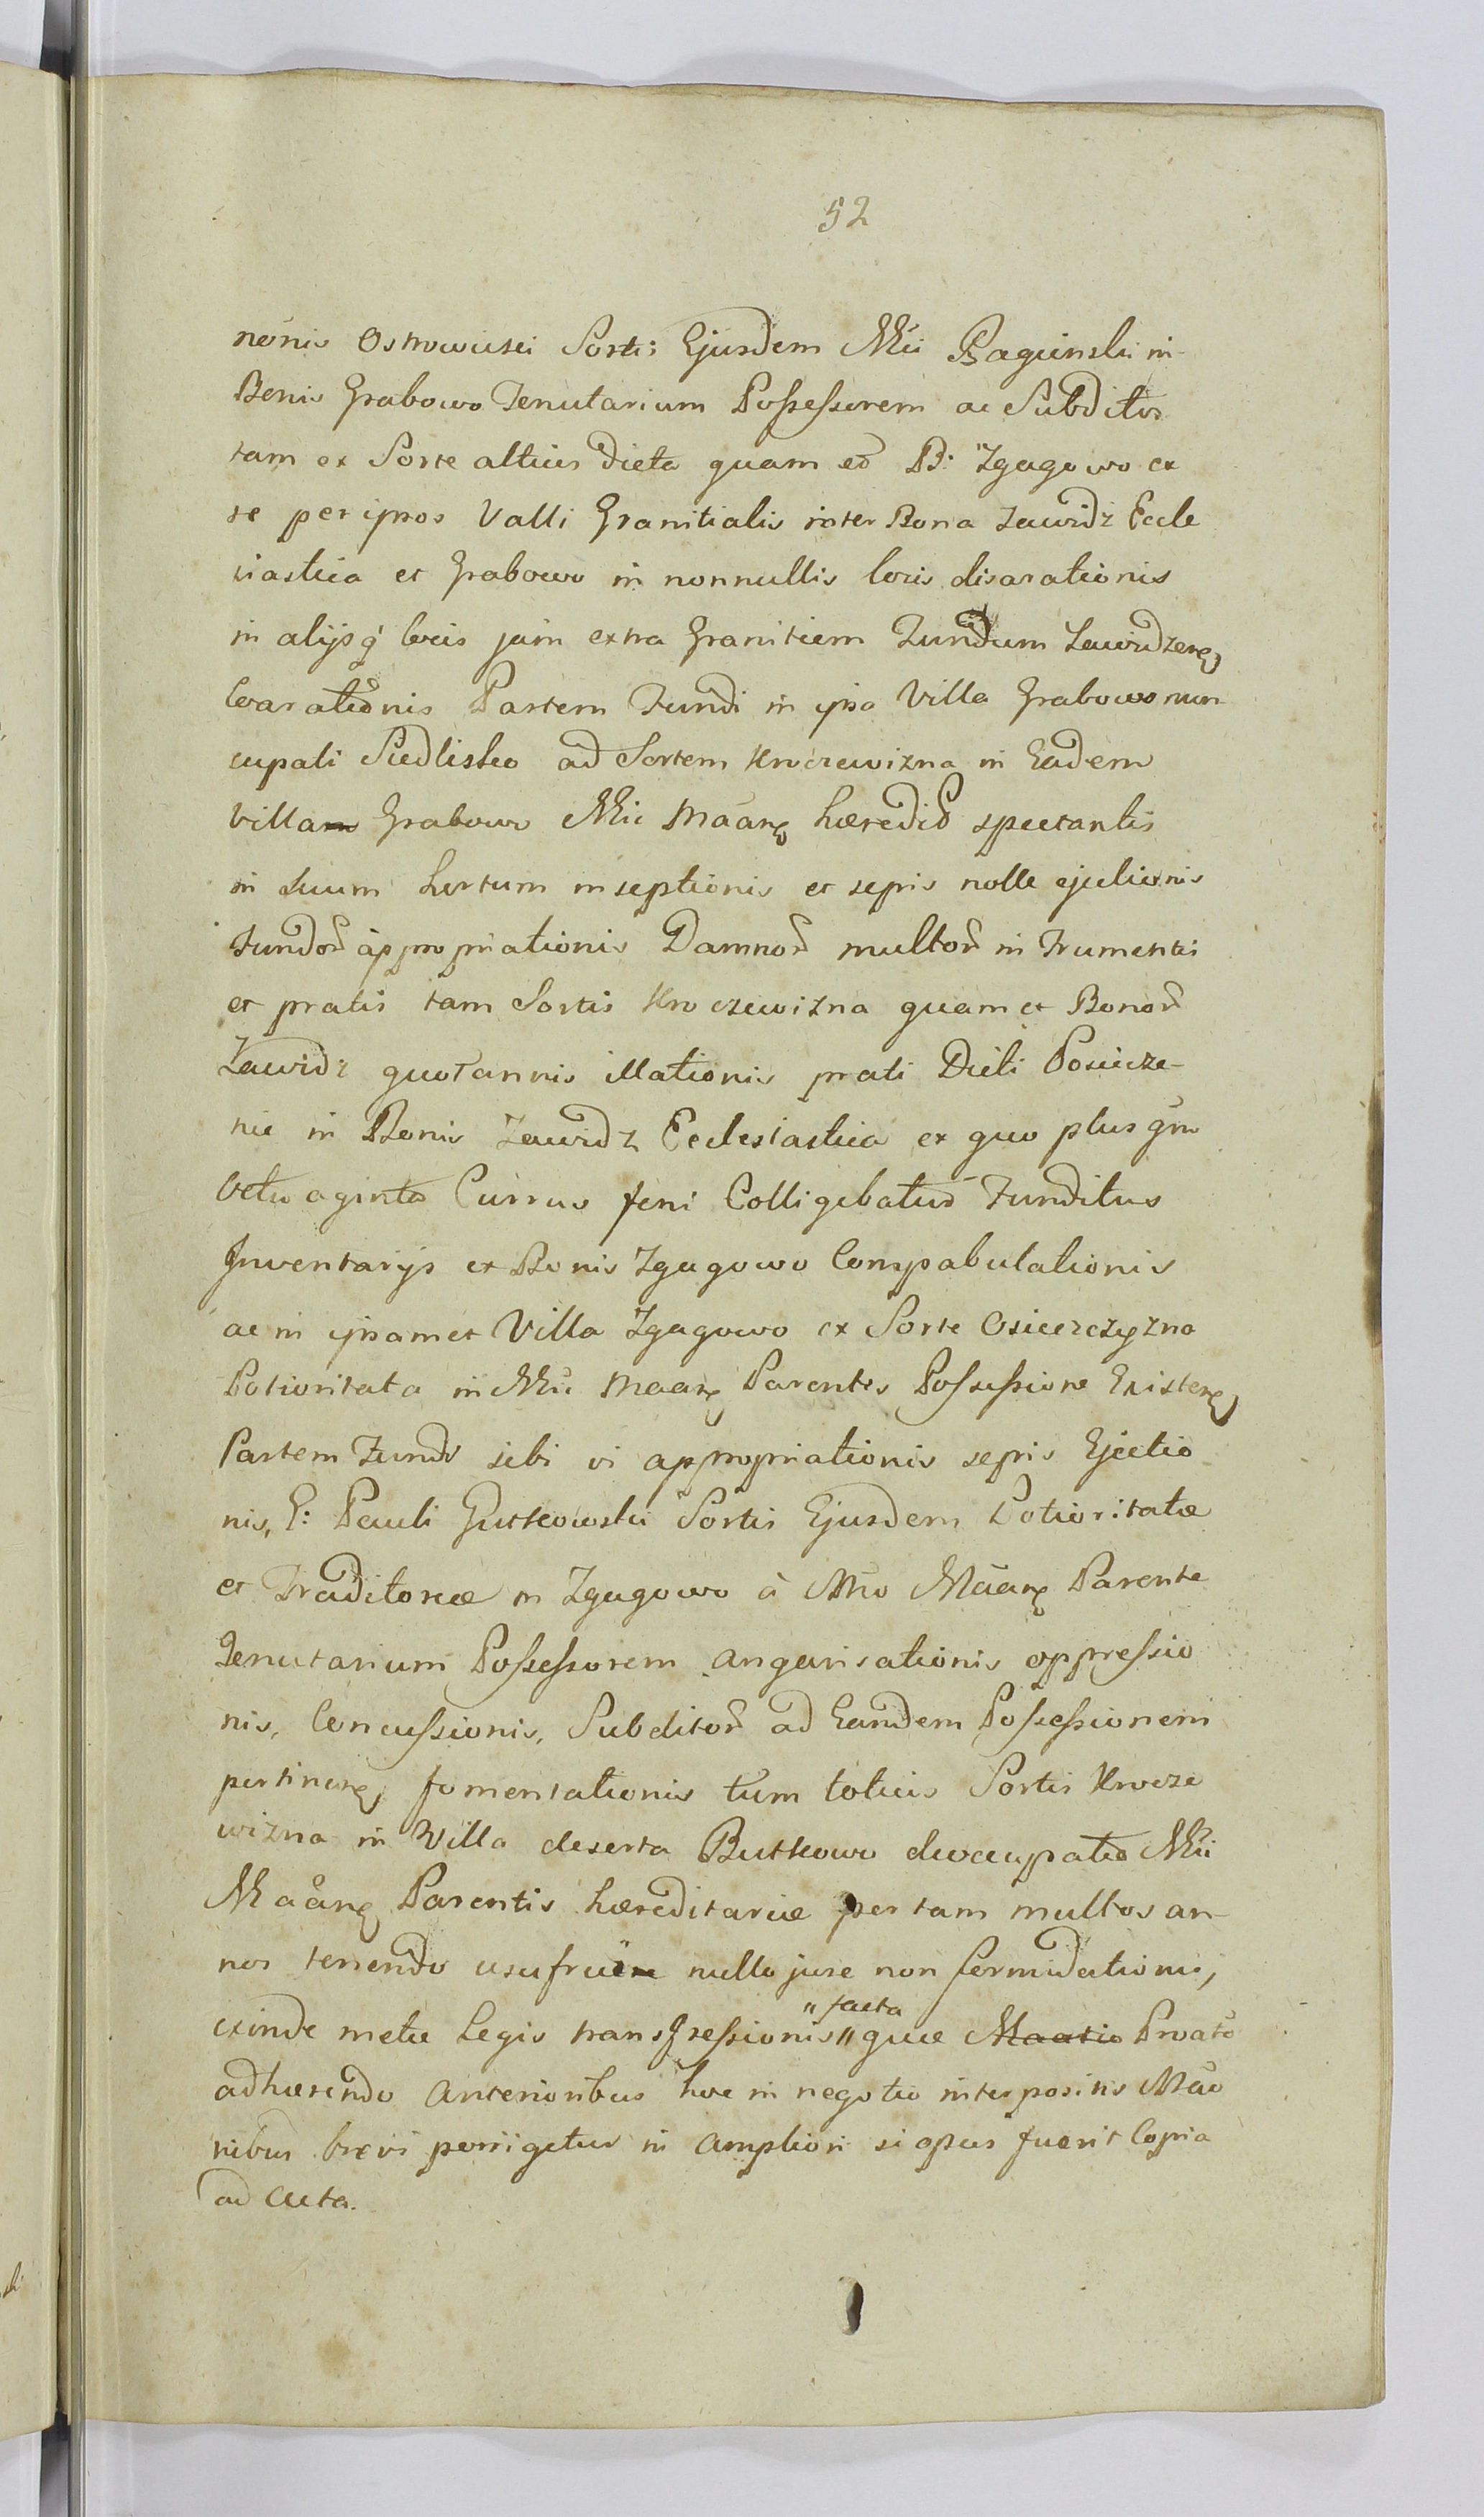 52
nonis Ostrowusei Sortis Ejusdem Mii Bagienskii in-
Bonis Grabowo Tenutarium Poſseſsorem ac Subditos
tam ex Sorte altius dicta quam eo B: Zgagowo ex
se per ipsos Valli Granitialis inter Bona Zawidz Eccle
siastica et Grabowo in nonnullis locis disarationis
in alijsq locis jam extra Granitiem Fundum Zawidzen
Coarationis Partem Fundi in ipsa Villa Grabowo nun
cupati Siedlisko ad Sortem Kroczewizna in Eadem
Villa Grabowo Mii Maan hæredit spectantis
in suum hortum inseptionis et sepis nolle ejulionis
Fundor appropriationis Damnor multor in Frumentis
et pratis tam Sortis Kroczewizna quam et Bonor
Zawidz quotannis illationis prati Dicti Posiecze-
nie in Bonis Zawidz Ecclesiastica ex quo plus qm
octuaginta Currus feni Colligebatur Funditus
Inventarijs ex Bonis Zgagowo Compabulationis
ac in ipsamet Villa Zgagowo ex Sorte Osieczczyzna
Potioritata in Mii Maan Parentis Poſseſsione Existen
Partem Fundi sibi vi appropriationis sepis Ejectio
nis, G: Pauli Gutkowskii Sortis Ejusdem Potioritatæ
et Traditoriæ in Zgagowo à Mio Maan Parente
Tenutarium Poſseſsorem angarisationis oppreſsio
nis, Concuſsionis, Subditor ad Eandem Poſseſsionem
pertinen, fomentationis tum totius Sortis Krocze
wizna in Villa deserta Butkowo deoccupatio Mii
Maan Parentis hæreditariæ per tam multos an-
nos tenendo usufrui nullo jure non formidationis,
exinde metu Legis transgreſsionis " facta " quæ Maatio Proato
adhærendo anterioribus hoc in negotio interpositis Mao
nibus brevi porrigetur in ampliori si opus fuerit Copia
ad acta.